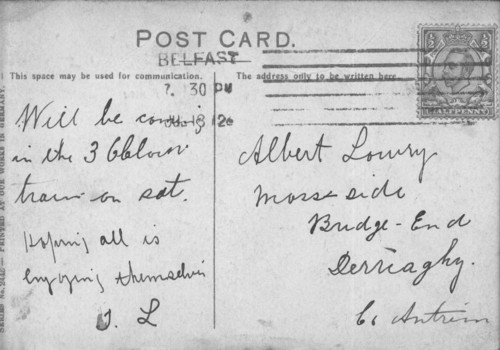 POST CARD.
BELFAST
This space may be used for communication.
The address only to be written here
7. 30 PM
12
HALFPENNY
Will be coming
in the 3 O'Clock
train on sat.
Hoping all is
enjoying themselves
J. L
Albert Lowry
Mosside
Bridge-End
Derriaghy.
Co Antrim
PRINTED AT OUR WORKS IN GERMANY.